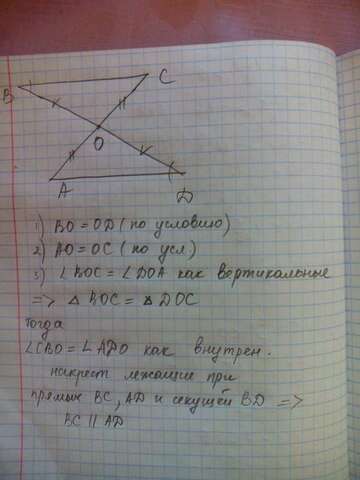 B
C
O
A
D
1) BO = OD (по условию)
2) AO = OC (по усл)
3) ∠BOC = ∠DOA как вертикальные
=> △ BOC = △ DOC
Тогда
∠CBO = ∠ADO как внутрен.
накрест лежащие при
прямых BC, AD и секущей BD =>
BC || AD